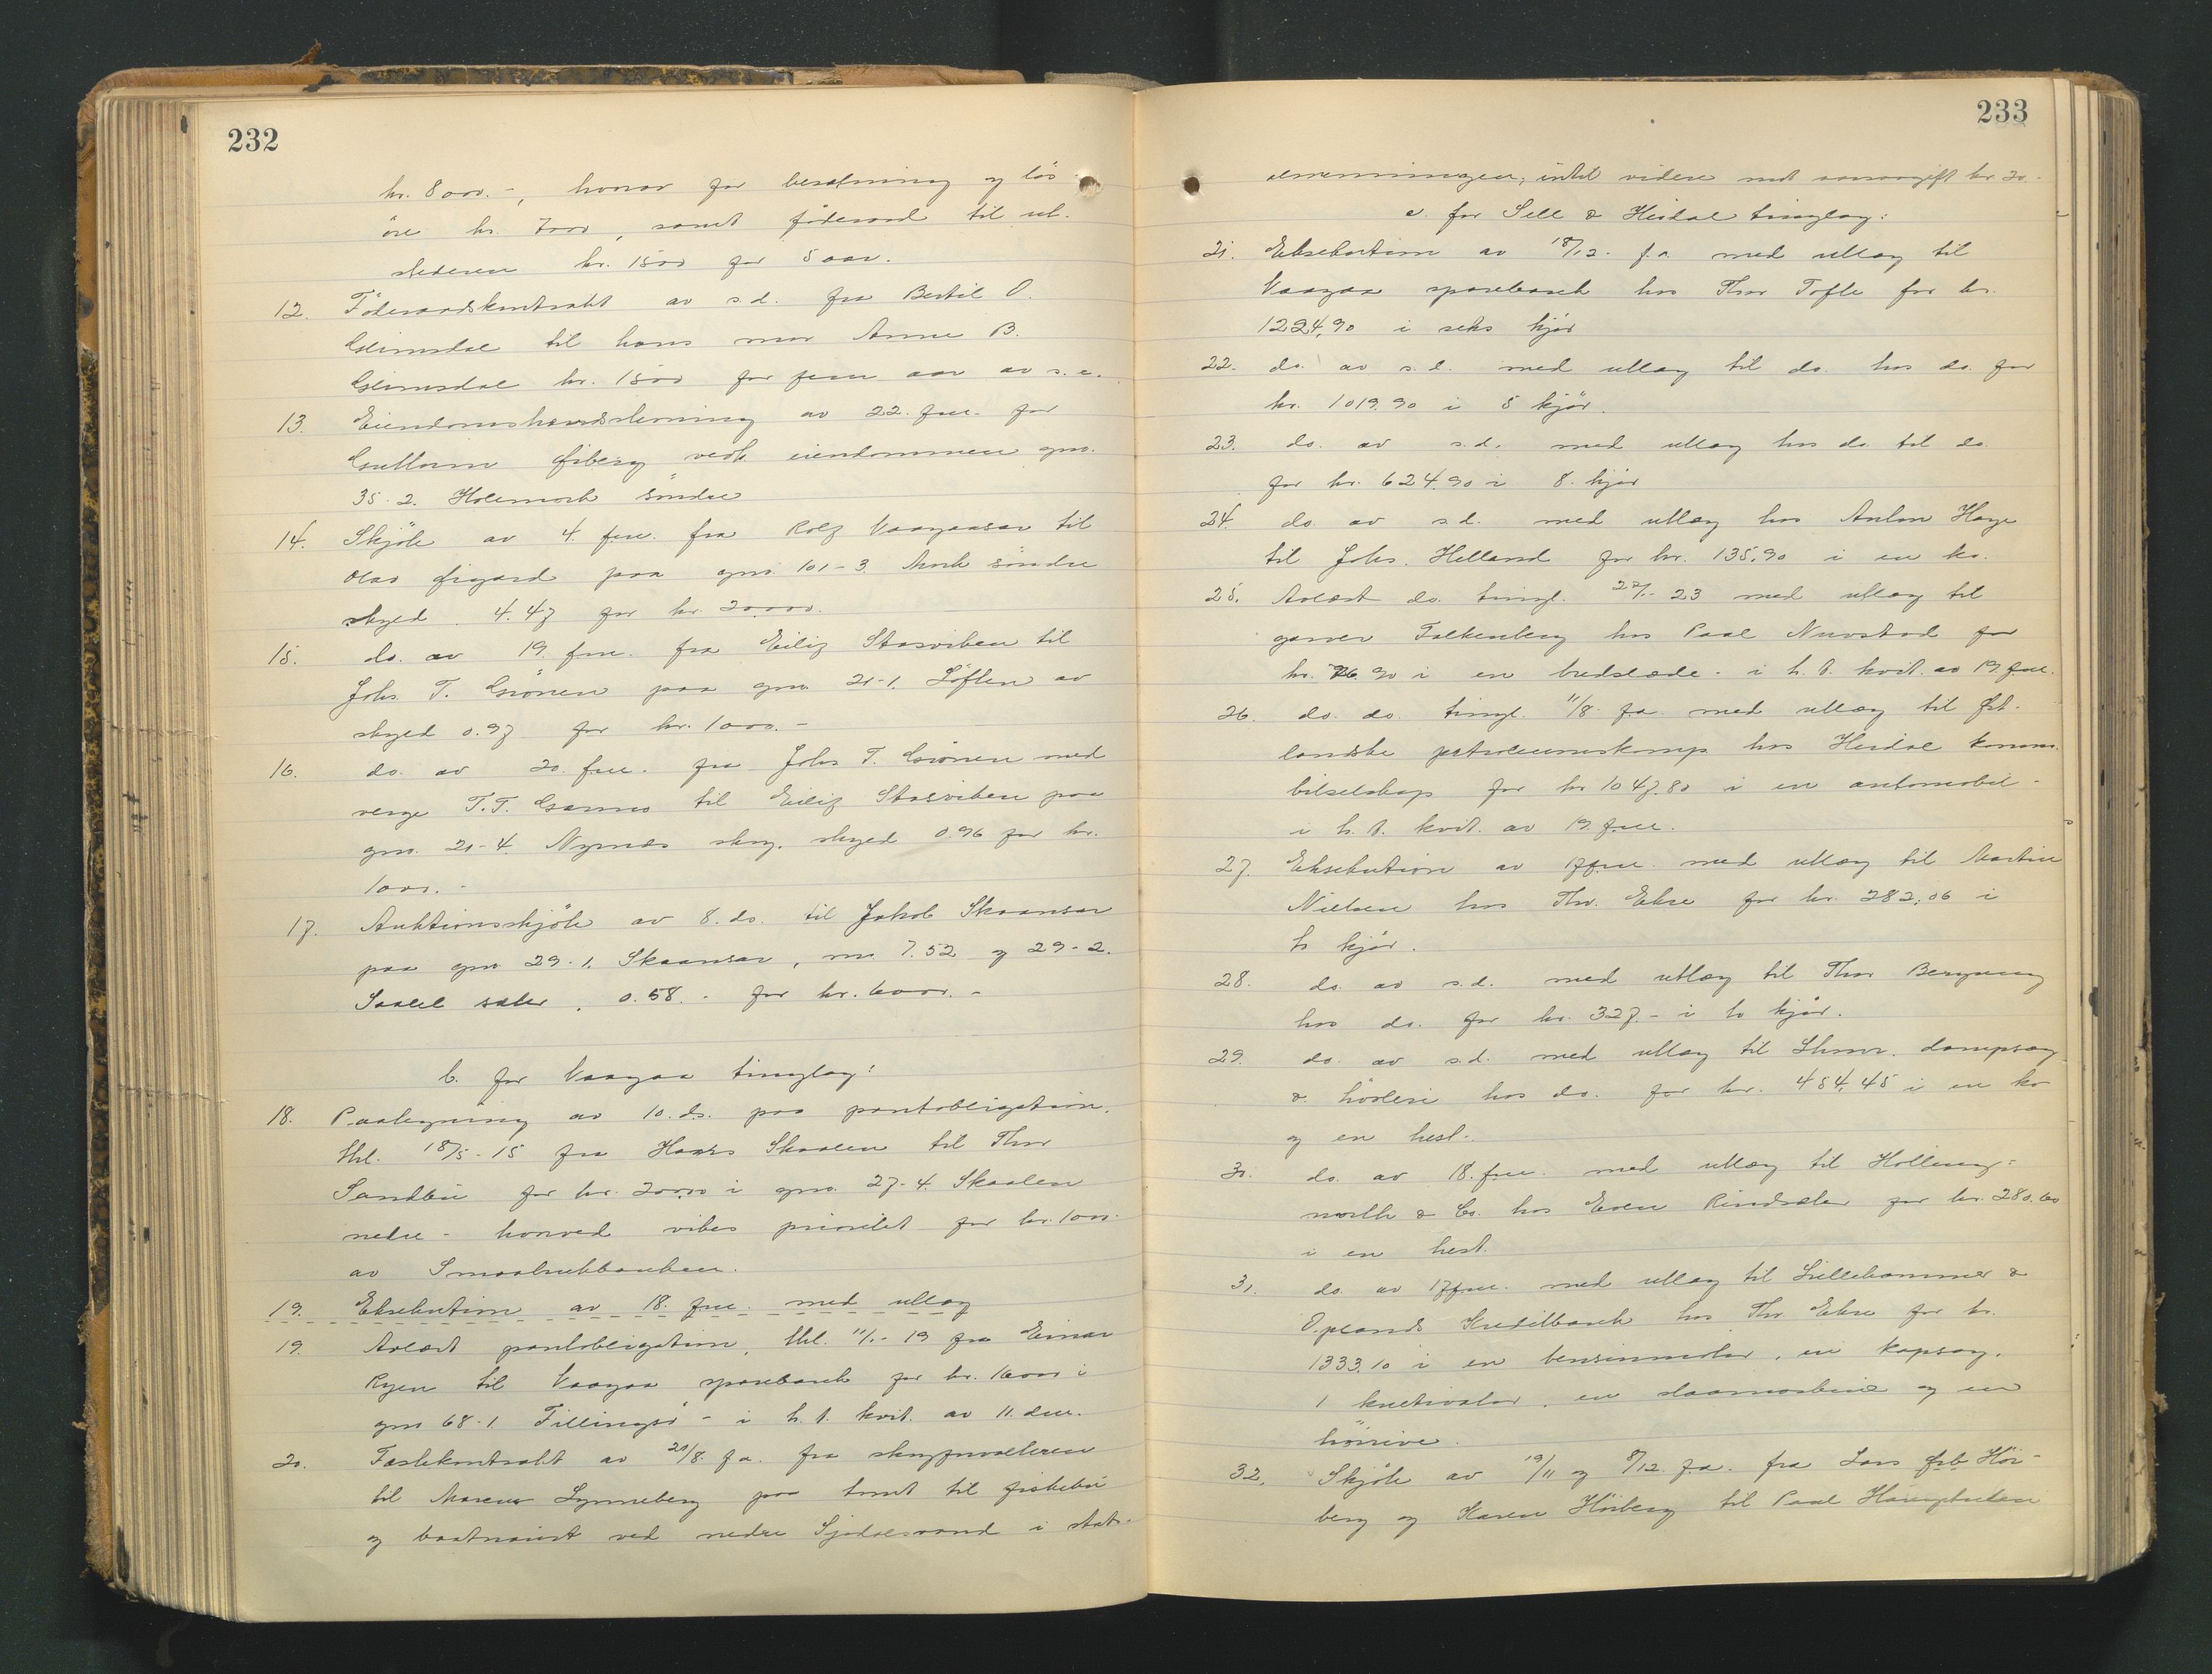 232
kr. 8000.-, hvorav for besætning og løs
øre kr. 7000, samt føderaad til ut-
stederen kr. 1500 for 5 aar.
12. Føderaadskontrakt av s.d. fra Bertil O.
Glimsdal til hans mor Anne B.
Glimsdal kr. 1500 for fem aar av s.e.
13. Eiendomshævdslysning av 22. fm. for
Guttorm Øiberg vedk. eiendommen gno.
35-2. Holemork søndre
14. Skjöte av 4. fm. fra Rolf Vaagaasar til
Olav Øigard paa gno. 101-3. Mork søndre
skyld 4.47 for kr. 20000.
15. do. av 19. fm. fra Eilif Stasviken til
Johs. T. Grönen paa gno. 21-1. Löften av
skyld 0.97 for kr. 1000.-
16. do. av 20. fm. fra Johs T. Grönen med
verge T.T. Gamno til Eilif Stasviken paa
gno. 21-4. Nymes skog. skyld 0.96 for kr.
1000.-
17. Auktionsskjöte av 8. ds. til Jakob Skaansar
paa gno 29-1. Skaansar, m. 7.52 og 29-2.
sæter, 0.58.- for kr. 6000.-
b. for Vaagaa tinglag:
18. Paategning av 10. ds. paa pantobligation,
thl. 18/5-15 fra Hans Skaalen til Thor
Sandbu for kr. 20000 i gno. 27-4. Skaalen
nedre - hvorved vikes prioritet for kr. 1000
av Smaabrukbanken.
19. Eksekution av 18. fm. med utlæg
19. Avlæst pantobligation, thl. 11/1-19 fra Einar
Ryen til Vaagaa sparebank for kr. 16000 i
gno 68-1. Tillingsö - i h. t. kvit. av 11. dm.
20. Festekontrakt av 20/8. f.a. fra skogforvalteren
til Marcus Lynneberg paa tomt til fiskebu
og baatnaust ved nedre Sjodalsvand i stats-
233
almenningen; intil videre mot aarsavgift kr. 20.-
c. for Sell & Heidal tinglag:
21. Eksekution av 18/12. f.a. med utlæg til
Vaagaa sparebank hos Thor Tofte for kr.
1224,90 i seks kjör
22. do. av s.d. med utlæg til do. hos do. for
kr. 1019.90 i 5 kjör.
23. do. av s.d. med utlæg hos do. til do.
for kr. 624.90 i 8. kjör
24. do av s.d. med utlæg hos Anton Hage
til Johs. Helland for kr. 135,90 i en ko.
25. Avlæst do. tingl. 23 med utlæg til
garver Falkenberg hos Paal Nurstad for
kr. 76.90 i en bredslæde - i h. t. kvit. av 19. fm.
26. do. do. tingl. 11/8. f.a. med utlæg til Øst-
landske petroleumskomp. hos Heidal komm.
bilselskap for kr 1047.80 i en automobil -
i h. t. kvit. av 19. fm.
27. Eksekution av 17. fm. med utlæg til Martin
Nielsen hos Thv. Ekre for kr. 282,06 i
to kjör.
28. do. av s.d. med utlæg til Thor
hos do. for kr. 327.- i to kjör.
29. do. av s.d. med utlæg til Lhmr. dampsag
& hövleri hos do. for kr. 454,45 i en ko
og en hest.
30. do. av 18. fm. med utlæg til Holling-
worth & Co. hos Even Rindsæter for kr. 280.60
i en hest.
31. do. av 17. fm. med utlæg til Lillehammer &
Oplands Kreditbank hos Thv Ekre for kr.
1333.10 i en bensinmotor, en kapsag,
1 kultivator, en slaamaskine og en
höirive.
32. Skjöte av 19/11 og 8/12. f.a. fra Lars Hör-
berg og Karen Hörberg til Paal